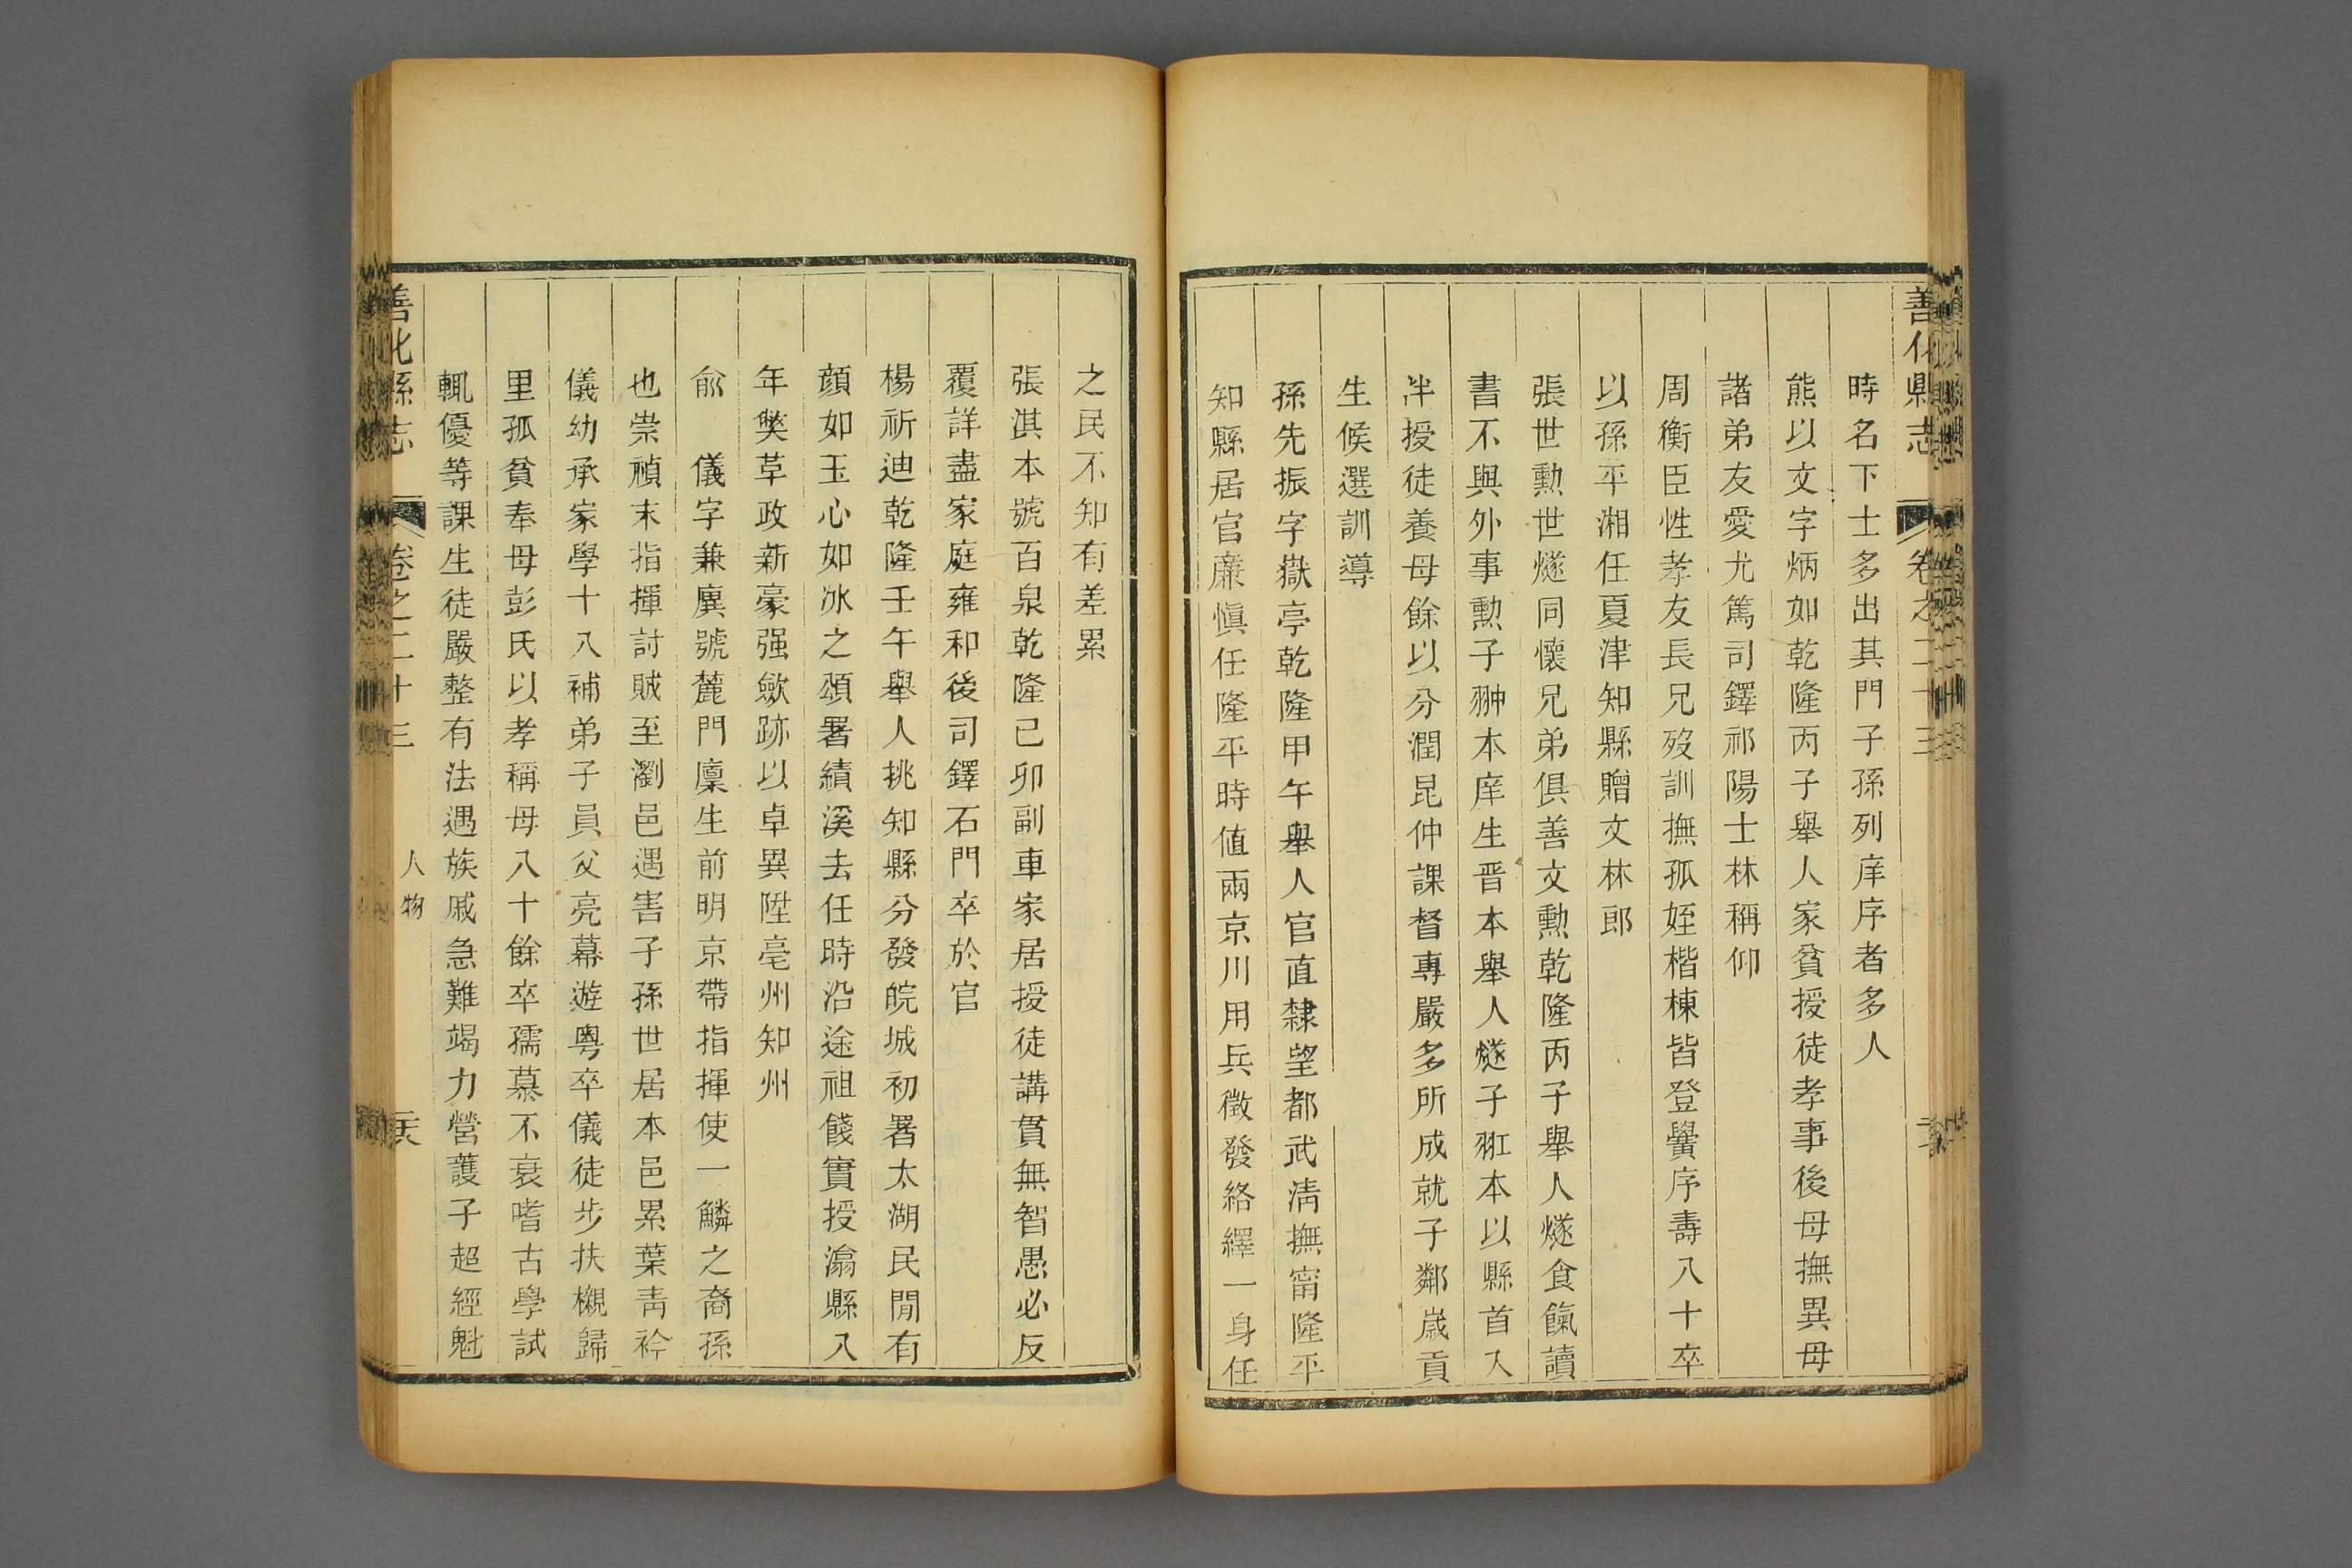 善化縣志
卷之二十三
時名下士多出其門子孫列庠序者多人
熊以文字炳如乾隆丙子舉人家貧授徒孝事後母撫異母
諸弟友愛尤篤司鐸祁陽士林稱仰
周衡臣性孝友長兄歿訓撫孤姪楷棟皆登黌序壽八十卒
以孫平湘任夏津知縣贈文林郎
張世勲世燧同懷兄弟俱善文勲乾隆丙子舉人燧食餼讀
書不與外事勲子翀本庠生晋本舉人燧子羾本以縣首入
泮授徒養母餘以分潤昆仲課督專嚴多所成就子鄰歲貢
生候選訓導
孫先振字嶽亭乾隆甲午舉人官直隸望都武清撫甯隆平
知縣居官廉慎任隆平時値兩京川用兵徵發絡繹一身任
之民不知有差累
張淇本號百泉乾隆己卯副車家居授徒講貫無智愚必反
覆詳盡家庭雍和後司鐸石門卒於官
楊祈迪乾隆壬午舉人挑知縣分發皖城初署太湖民間有
顔如玉心如冰之頌署績溪去任時沿途祖餞實授潝縣入
年獘草政新豪强斂跡以卓異陞亳州知州
俞 儀字兼廙號麓門廩生前明京帶指揮使一鱗之裔孫
也崇禎末指揮討賊至瀏邑遇害子孫世居本邑累葉靑衿
儀幼承家學十八補弟子員父亮幕遊粵卒儀徒步扶櫬歸
里孤貧奉母彭氏以孝稱母八十餘卒孺慕不衰嗜古學試
輒優等課生徒嚴整有法遇族戚急難竭力營護子超經魁
善化縣志
卷之二十三
人物